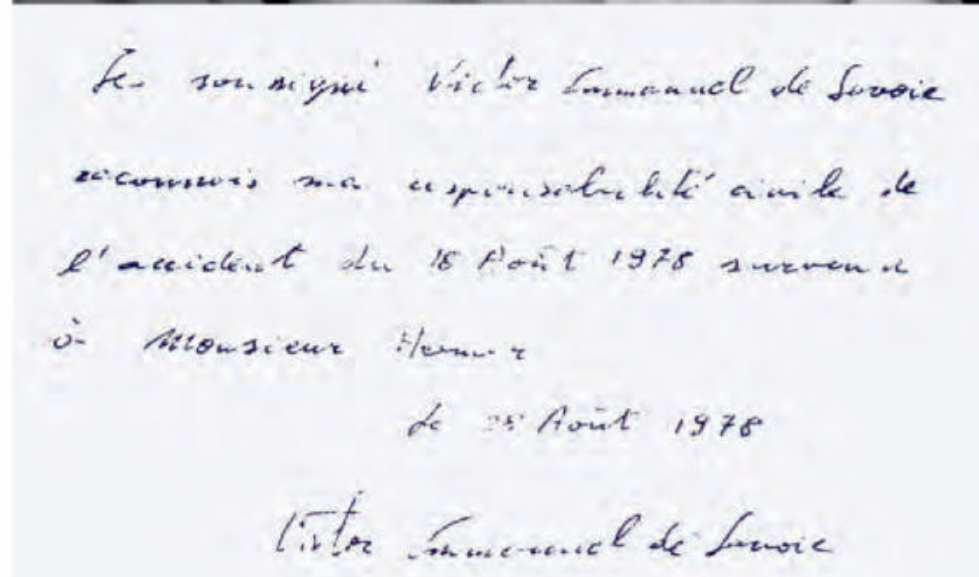 Je soussigné Victor Emmanuel de Savoie
reconnois ma responsabilité civile de
l'accident du 18 Août 1978 survenu
à Monsieur Hamer
le Août 1978
Victor Emmanuel de Savoie